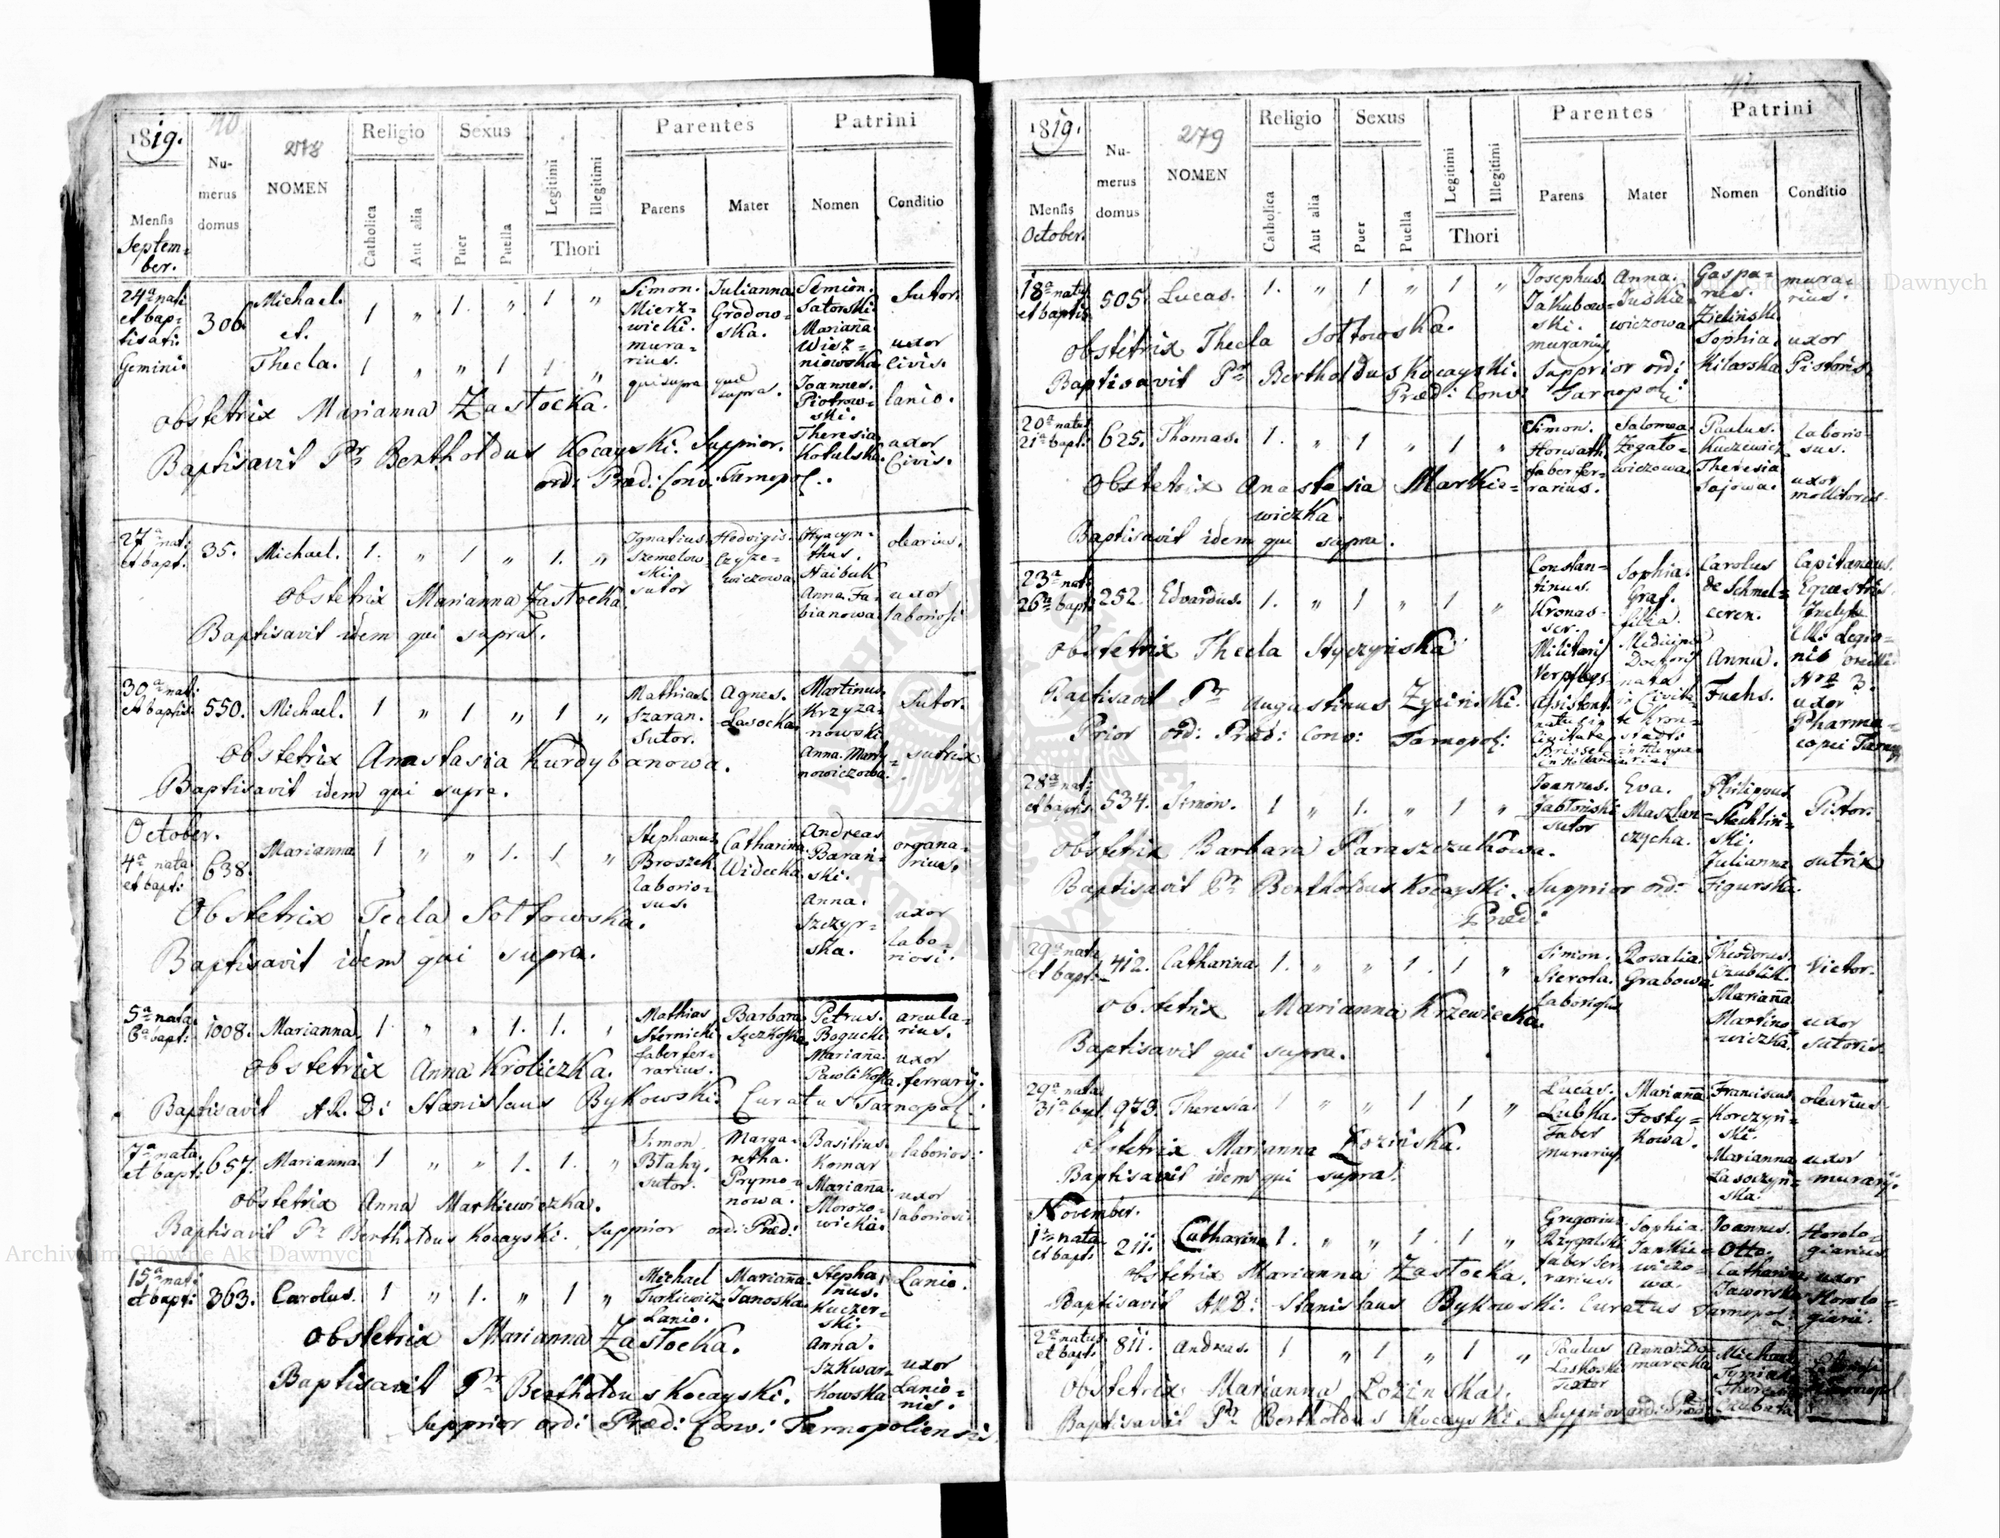 1819.
278
Religio
Sexus
Parentes
Patrini
Nu-
merus
domus
NOMEN
Catholica
Aut alia
Puer
Puella
Legitimi
Illegitimi
Thori
Parens
Mater
Nomen
Conditio
Mensis
Septem-
ber.
24ª nati
et bap-
tisati.
Gemini.
306.
Michael.
et.
Thecla.
1 " 1. " 1 "
1 " " 1 1 "
Simon.
Mierz-
wicki.
mura-
rius.
qui supra
Julianna
Gradow-
ska.
quae
supra.
Simion.
Satorski.
Marianna
Wisz-
niowska
Joannes.
Piotrow-
ski.
Theresia
Kotulska.
Sutor.
uxor
Civis.
lanio.
uxor
Civis.
Obstetrix Marianna Zastocka.
Baptisavit Pr Bertholdus Kocayski. Supprior.
ord: Præd: Conv: Tarnopol:.
27ª nat:
et bapt:
35.
Michael.
1. " 1 " 1. "
Ignatius
Szemelow
ski.
Sutor
Hedvigis.
Czyze-
wiczowa
Hyacyn-
thus.
Haibuk
Anna Fa-
bianowa
olearius.
uxor
laboriosi
Obstetrix Marianna Zastocka.
Baptisavit idem qui supra.
30ª nat:
et baptis:
550.
Michael.
1 " 1 " 1 "
Mathias
Szaran.
Sutor.
Agnes.
Lasocka
Martinus
Krzyza-
nowski
Anna Marty-
nowiczowa.
Sutor.
sutrix
Obstetrix Anastasia Kurdybanowa.
Baptisavit idem qui supra.
October.
4ª nata
et bapt:
638.
Marianna
1 " " 1. 1. "
Stephanus
Broszek
laborio-
sus.
Catharina
Widecka.
Andreas
Barań-
ski.
Anna.
Szczyr-
ska.
organa-
rius.
uxor
labo-
riosi.
Obstetrix Tecla Soltowska.
Baptisavit idem qui supra.
5ª nata.
6ª bapt:
1008.
Marianna.
1 " " 1. 1. "
Mathias
Sternicki
faber fer-
rarius.
Barbara
Petrus.
Bogucki
Marianna.
Pawlikowska.
arcula-
rius.
uxor
ferrarij.
Obstetrix Anna Kroliczka.
Baptisavit A.R.D: Stanislaus Bykowski. Curatus Tarnopol:
7ª nata
et bapt:
657.
Marianna.
1 " " 1. 1. "
Simon
Blahy.
Sutor.
Marga-
retha.
Prymo-
nowa.
Basilius
Komar
Marianna
Morozo-
wicka.
laborios:
uxor
laboriosi.
Obstetrix Anna Markiewiczka.
Baptisavit Pr Bertholdus Kocayski. Supprior ord: Præd:
15ª nat:
et bapt:
363.
Carolus.
1 " 1. " 1 "
Michael
Turkiewicz
Lanio.
Marianna.
Janoska.
Stepha-
nus.
Kuczer-
ski.
Anna.
Szkwar-
kowska
Lanio.
uxor
Lanio-
nis.
Obstetrix Marianna Zastocka.
Baptisavit Pr Bertholdus Kocayski.
Supprior ord: Præd: Conv: Tarnopoliensis
1819.
279
Religio
Sexus
Parentes
Patrini
Nu-
merus
domus
NOMEN
Catholica
Aut alia
Puer
Puella
Legitimi
Illegitimi
Thori
Parens
Mater
Nomen
Conditio
Mensis
October.
18ª natus
et baptis
505.
Lucas.
1. " 1 " 1 "
Josephus.
Jakubow-
ski.
murarius.
Anna.
Juskie-
wiczowa
Gaspa-
rus.
Zieliński
Sophia
Kilarska
mura-
rius.
uxor
Pistoris.
Obstetrix Thecla Soltowska.
Baptisavit Pr Bertholdus Kocayski. Supprior ord:
Præd: Conv: Tarnopol:
20ª natus
21ª bapt:
625.
Thomas.
1. " 1 " 1 "
Simon.
Horwath.
faber fer-
rarius.
Salomea
Zegało-
wiczowa.
Paulus.
Kuczewicz
Theresia
Sajowa.
laborio-
sus.
uxor
mollitoris
Obstetrix Anastasia Markie-
wiczka.
Baptisavit idem qui supra.
23ª nat:
26ª bapt:
252.
Edvardus.
1. " 1 " 1 "
Constan-
tinus.
Kronas-
ser.
Militaris
Verpflegs
Assistent
natus in
Civitate
Brissel
in Hollandia
Sophia.
Graf.
filia.
Medicinae
Doctoris
nata
in Civita-
te Kron-
stadt
in Hunga-
ria.
Carolus
de Schmel-
ceren.
Anna.
Fuchs.
Capitaneus.
Equestris
Inclytae
Legio-
nis
Nro 3.
uxor
Pharma-
copei Tarnop
Obstetrix Thecla Styczyńska
Baptisavit Pr Augustinus Zyciński.
Prior ord: Præd: Conv: Tarnopol:
28ª nat:
et baptis:
534.
Simon.
1 " 1. " 1 "
Joannes.
Jabłoński
Sutor
Eva.
Maszlan-
czycha.
Philippus
Stecklin-
ski.
Julianna
Figurska.
Pistor.
sutrix
Obstetrix Barbara Paraszczukowa.
Baptisavit Pr Bertholdus Kocayski. Supprior ord:
Præd:
29ª nata
et bapt:
412.
Catharina
1. " " 1. 1 "
Simon.
Sierota.
laboriosus
Rosalia.
Grabowa
Theodorus.
Czublik
Marianna
Martino-
wiczka.
Victor.
uxor
sutoris.
Obstetrix Marianna Krzewiecka.
Baptisavit qui supra.
29ª nata
31ª bapt.
973.
Theresia.
1 " " 1 1 "
Lucas.
Lubka.
Faber
murarius
Marianna
Fosty-
kowa.
Franciscus
Korczyń-
ski.
Marianna
Lasoczyń-
ska.
olearius.
uxor
murarij.
Obstetrix Marianna Łozińska.
Baptisavit idem qui supra.
November.
1ª nata
et bapt.
211.
Catharina
1. " " 1. 1 "
Gregorius
Rzygalski
faber fer-
rarius.
Sophia.
Jankie-
wiczo-
wa.
Joannes.
Otto.
Catharina
Jaworska
Horolo-
giarius.
uxor
Horolo-
giarii.
Obstetrix Marianna Zastocka.
Baptisavit A.R.D: Stanislaus Bykowski. Curatus Tarnopol:
2ª natus
et bapt:
811.
Andreas.
1 " 1 " 1 "
Paulus
Laskoski
Textor
Anna Do-
murecka
Obstetrix Marianna Łozinska.
Baptisavit Pr Bertholdus Kocayski. Supprior ord: Præd:
Archiwum Główne Akt Dawnych
Archiwum Główne Akt Dawnych